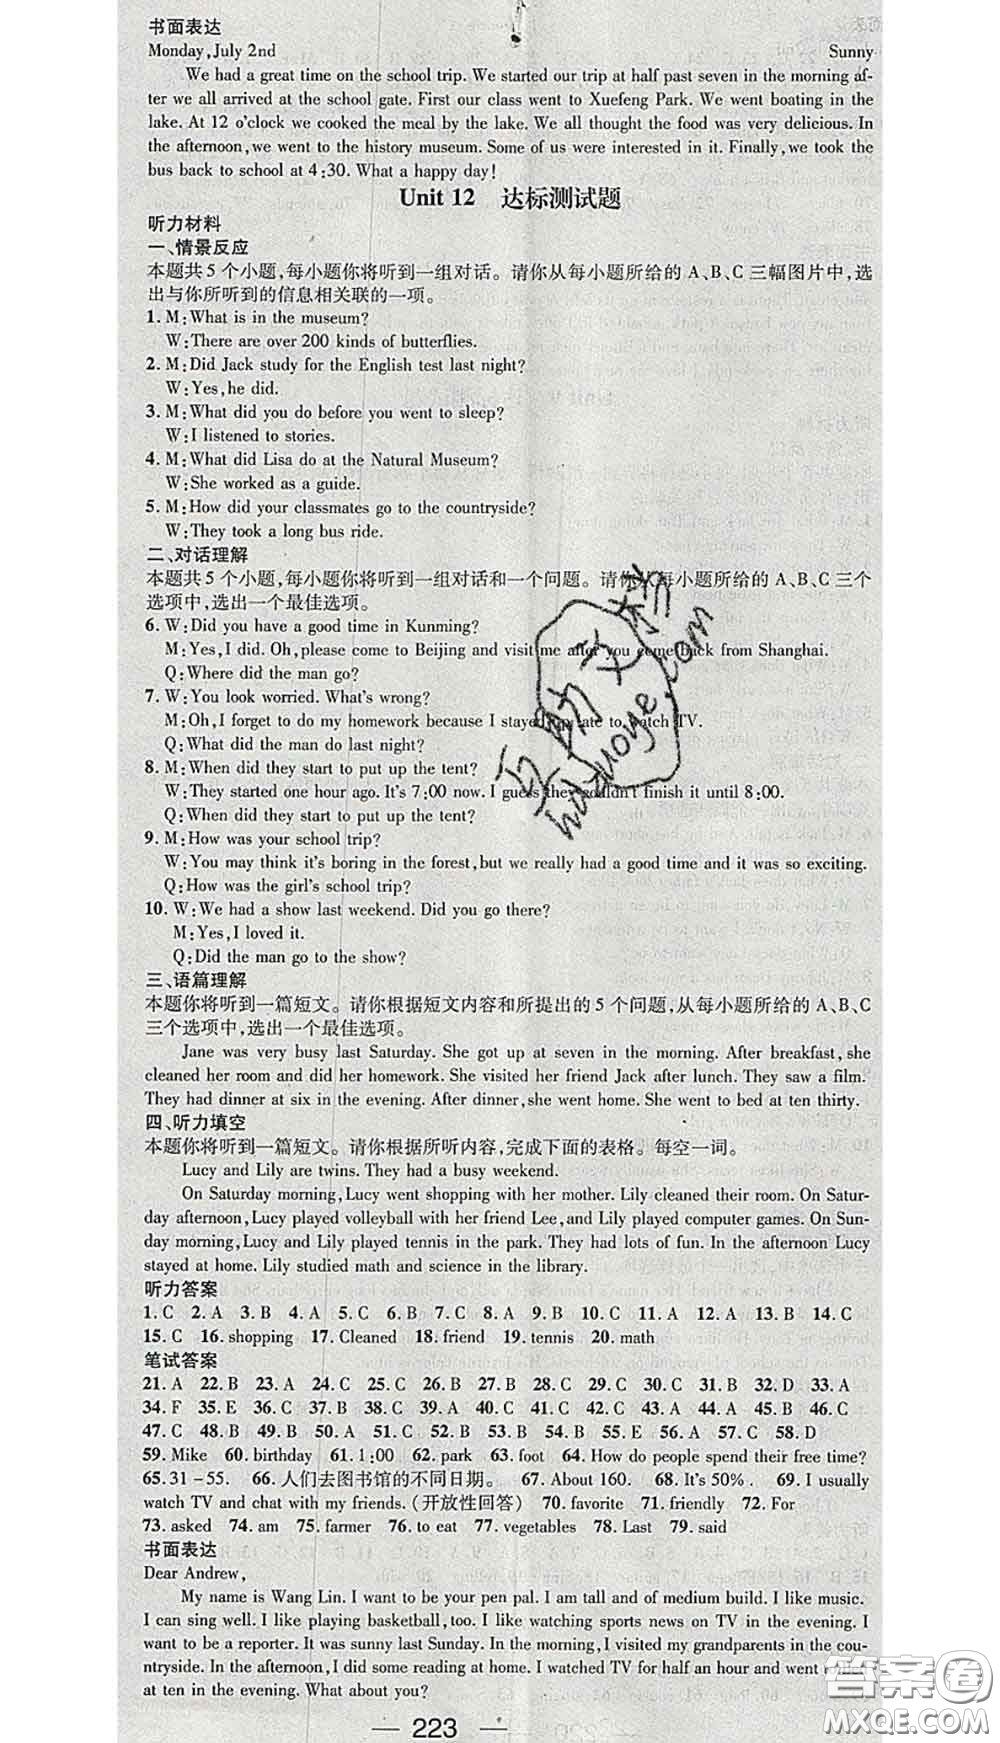 书面表达
Monday,July 2nd Sunny
We had a great time on the school trip. We started our trip at half past seven in the morning af-
ter we all arrived at the school gate. First our class went to Xuefeng Park. We went boating in the
lake. At 12 o'clock we cooked the meal by the lake. We all thought the food was very delicious. In
the afternoon,we went to the history museum. Some of us were interested in it. Finally,we took the
bus back to school at 4:30. What a happy day!
Unit 12 达标测试题
听力材料
一、情景反应
本题共5个小题,每小题你将听到一组对话。请你从每小题所给的A、B、C三幅图片中,选
出与你所听到的信息相关联的一项。
1. M:What is in the museum?
W:There are over 200 kinds of butterflies.
2. M:Did Jack study for the English test last night?
W:Yes,he did.
3. M:What did you do before you went to sleep?
W:I listened to stories.
4. M:What did Lisa do at the Natural Museum?
W:She worked as a guide.
5. M:How did your classmates go to the countryside?
W:They took a long bus ride.
二、对话理解
本题共5个小题,每小题你将听到一组对话和一个问题。请你从每小题所给的A、B、C三个
选项中,选出一个最佳选项。
6. W:Did you have a good time in Kunming?
M:Yes,I did. Oh,please come to Beijing and visit me after you come back from Shanghai.
Q:Where did the man go?
7. W:You look worried. What's wrong?
M:Oh,I forget to do my homework because I stayed up late to watch TV.
Q:What did the man do last night?
8. M:When did they start to put up the tent?
W:They started one hour ago. It's 7:00 now. I guess they couldn't finish it until 8:00.
Q:When did they start to put up the tent?
9. M:How was your school trip?
W:You may think it's boring in the forest,but we really had a good time and it was so exciting.
Q:How was the girl's school trip?
10. W:We had a show last weekend. Did you go there?
M:Yes,I loved it.
Q:Did the man go to the show?
三、语篇理解
本题你将听到一篇短文。请你根据短文内容和所提出的5个问题,从每小题所给的A、B、C
三个选项中,选出一个最佳选项。
Jane was very busy last Saturday. She got up at seven in the morning. After breakfast,she
cleaned her room and did her homework. She visited her friend Jack after lunch. They saw a film.
They had dinner at six in the evening. After dinner,she went home. She went to bed at ten thirty.
四、听力填空
本题你将听到一篇短文。请你根据所听内容,完成下面的表格。每空一词。
Lucy and Lily are twins. They had a busy weekend.
On Saturday morning,Lucy went shopping with her mother. Lily cleaned their room. On Satur-
day afternoon,Lucy played volleyball with her friend Lee,and Lily played computer games. On Sun-
day morning,Lucy and Lily played tennis in the park. They had lots of fun. In the afternoon Lucy
stayed at home. Lily studied math and science in the library.
听力答案
1. C 2. A 3. B 4. A 5. C 6. B 7. C 8. A 9. B 10. C 11. A 12. A 13. B 14. C
15. C 16. shopping 17. Cleaned 18. friend 19. tennis 20. math
笔试答案
21. A 22. B 23. A 24. C 25. C 26. B 27. B 28. C 29. C 30. C 31. B 32. D 33. A
34. F 35. E 36. C 37. B 38. C 39. A 40. C 41. B 42. C 43. A 44. A 45. B 46. C
47. C 48. B 49. B 50. A 51. C 52. B 53. B 54. B 55. E 56. A 57. C 58. D
59. Mike 60. birthday 61. 1:00 62. park 63. foot 64. How do people spend their free time?
65. 31-55. 66. 人们去图书馆的不同日期。 67. About 160. 68. It's 50%. 69. I usually
watch TV and chat with my friends.(开放性回答) 70. favorite 71. friendly 72. For
73. asked 74. am 75. farmer 76. to eat 77. vegetables 78. Last 79. said
书面表达
Dear Andrew,
My name is Wang Lin. I want to be your pen pal. I am tall and of medium build. I like music.
I can sing well. I like playing basketball,too. I like watching sports news on TV in the evening. I
want to be a reporter. It was sunny last Sunday. In the morning,I visited my grandparents in the cou-
ntryside. In the afternoon,I did some reading at home. I watched TV for half an hour and went to bed
at ten in the evening. What about you?
223
答案卷
MXQE.COM